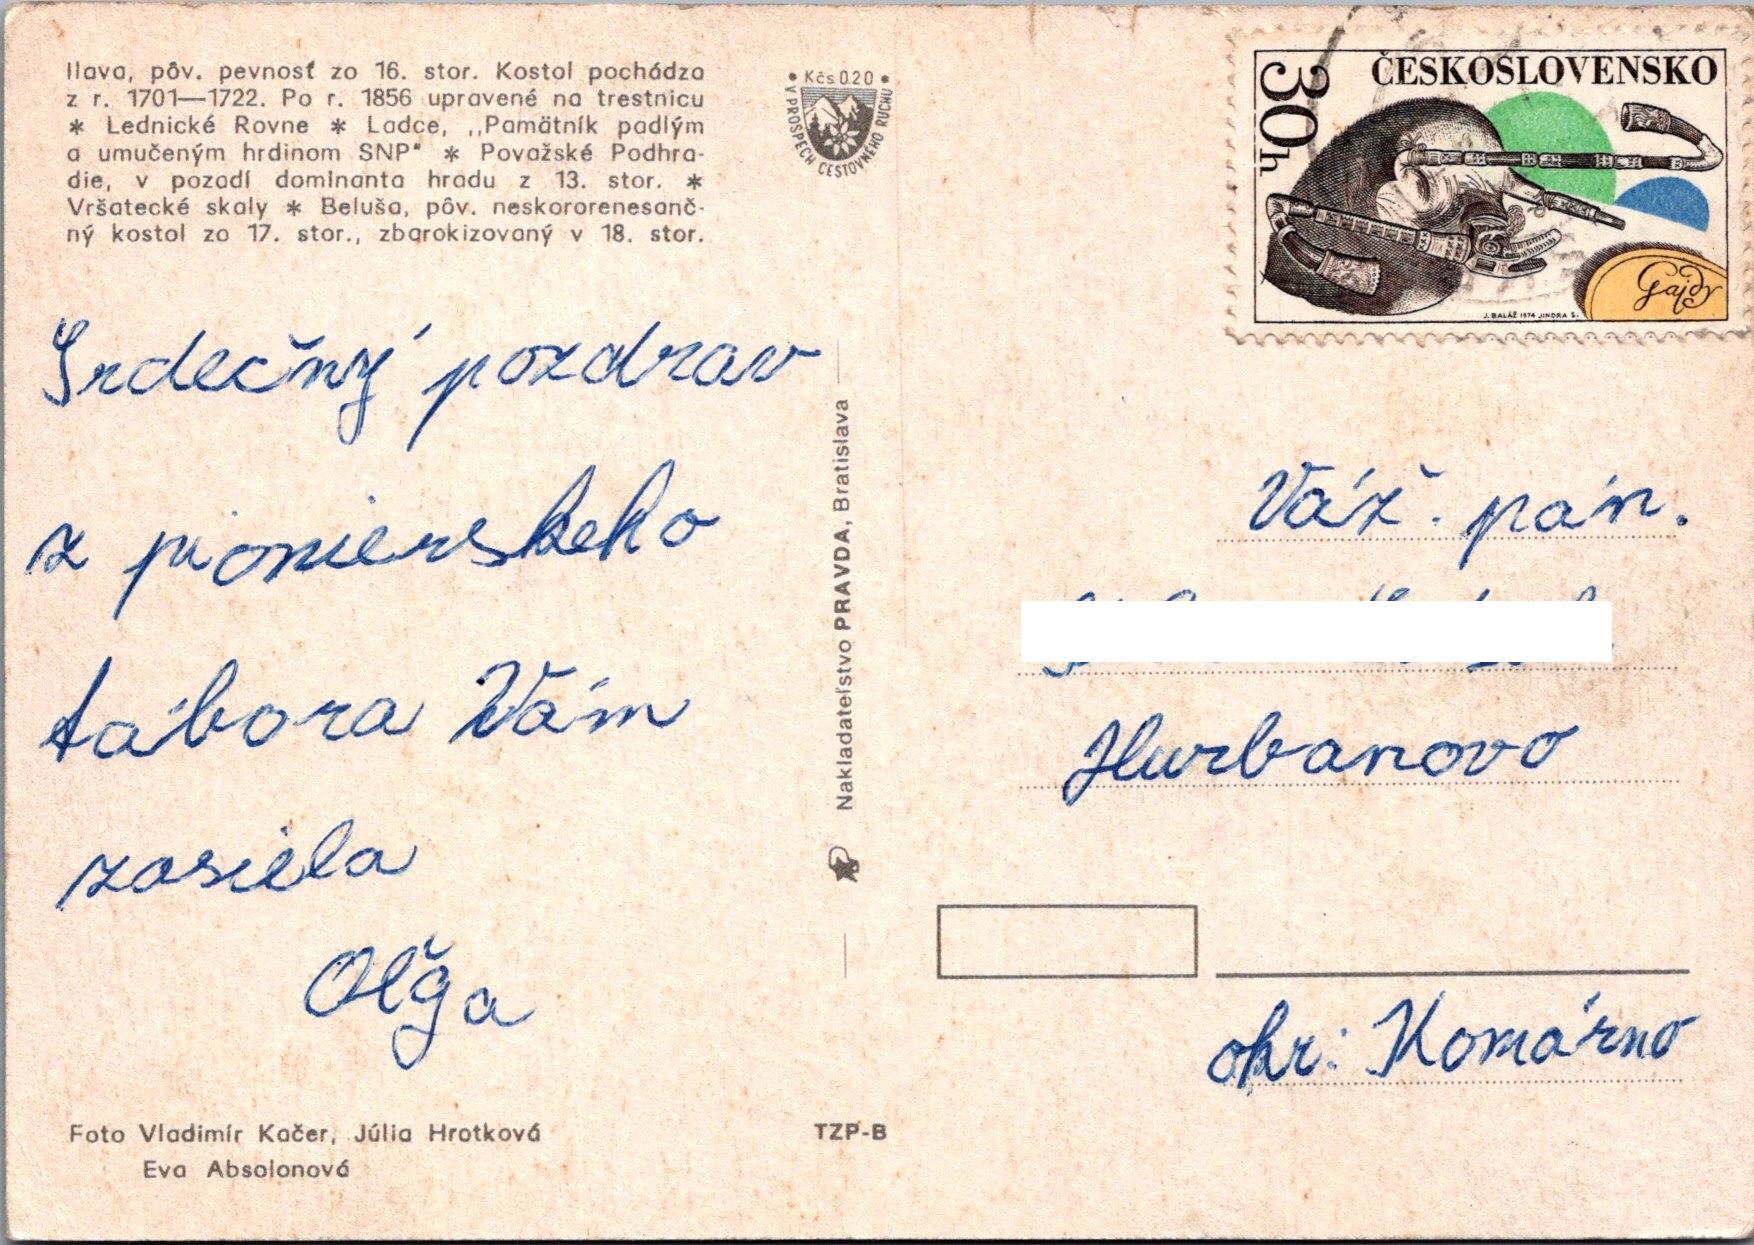 Ilava, pôv. pevnosť zo 16. stor. Kostol pochádza
z r. 1701—1722. Po r. 1856 upravené na trestnicu
* Lednické Rovne * Ladce, „Pamätník padlým
a umučeným hrdinom SNP" * Považské Podhra-
die, v pozadí dominanta hradu z 13. stor. *
Vršatecké skaly * Beluša, pôv. neskororenesanč-
ný kostol zo 17. stor., zbarokizovaný v 18. stor.
• Kčs 0.20 •
V PROSPECH CESTOVNÉHO RUCHU
30h
ČESKOSLOVENSKO
Gajdy
J. BALÁŽ 1974 JINDRA S.
Srdečný pozdrav
z pionierskeho
tábora Vám
zasiela
Oľga
Nakladateľstvo PRAVDA, Bratislava
Váž. pán.
Hurbanovo
okr: Komárno
Foto Vladimír Kačer, Júlia Hrotková
Eva Absolonová
TZP-B